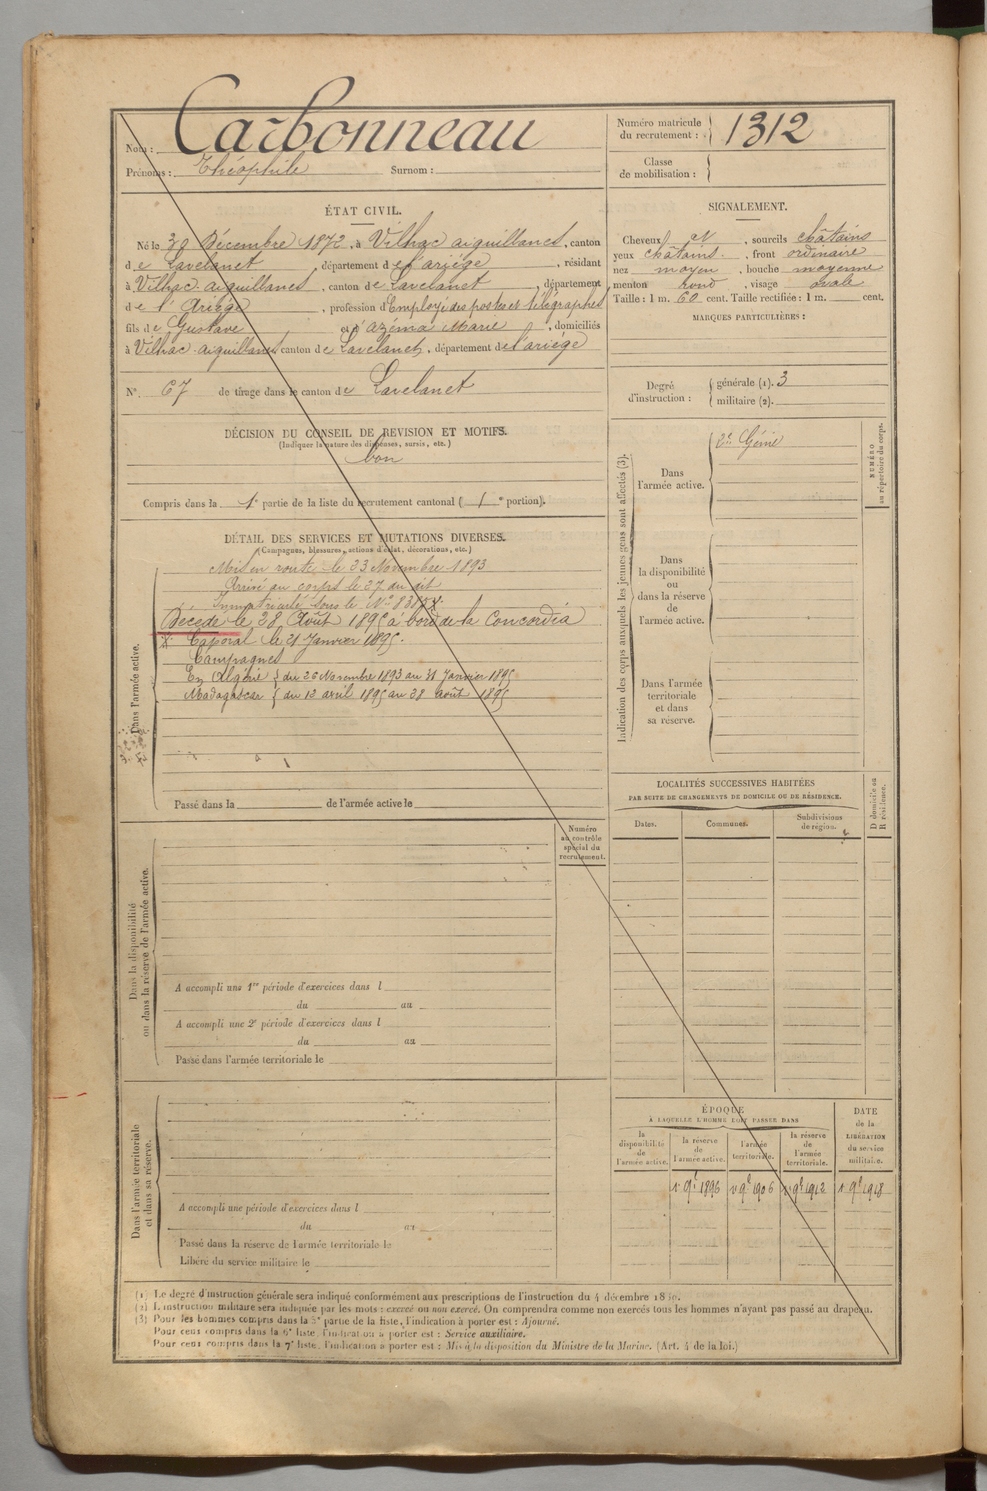 Nom : Carbonneau
Prénoms : Théophile Surnom :
Numéro matricule du recrutement : 1312
Classe de mobilisation :
ÉTAT CIVIL.
Né le 30 Décembre 1872, à Vilhac aiguillanes, canton
de Lavelanet, département de l'ariège, résidant
à Vilhac-aiguillanes, canton de Lavelanet, département
de l'Ariège, profession d'Employé des postes et télégraphes
fils de Gustave et d'azéma Marie, domiciliés
à Vilhac-aiguillanes canton de Lavelanet, département de l'ariège
N° 67 de tirage dans le canton de Lavelanet
SIGNALEMENT.
Cheveux et, sourcils châtains
yeux châtains, front ordinaire
nez moyen, bouche moyenne
menton rond, visage ovale
Taille : 1 m. 60 cent. Taille rectifiée : 1 m. cent.
MARQUES PARTICULIÈRES :
Degré d'instruction : générale (1). 3
militaire (2).
DÉCISION DU CONSEIL DE REVISION ET MOTIFS.
(Indiquer la nature des dispenses, sursis, etc.)
bon
Compris dans la 1e partie de la liste du recrutement cantonal ( 1e portion).
DÉTAIL DES SERVICES ET MUTATIONS DIVERSES.
(Campagnes, blessures, actions d'éclat, décorations, etc.)
Dans l'armée active.
Mis en route le 23 Novembre 1893
Arrivé au corps le 27 du dit
Immatriculé sous le N°
Décédé le 28 Août 1895 à bord de la Concordia
X Caporal le 21 Janvier 1895.
Campagnes
En Algérie { du 26 Novembre 1893 au 31 Janvier 1895
Madagascar { du 12 avril 1895 au 28 août 1895
Passé dans la de l'armée active le
Indication des corps auxquels les jeunes gens sont affectés (3).
NUMÉRO au répertoire du corps.
Dans l'armée active.
2e Génie
Dans la disponibilité ou dans la réserve de l'armée active.
Dans l'armée territoriale et dans sa réserve.
LOCALITÉS SUCCESSIVES HABITÉES
PAR SUITE DE CHANGEMENTS DE DOMICILE OU DE RÉSIDENCE.
Dates. Communes. Subdivisions de région. D domicile ou R résidence.
Numéro au contrôle spécial du recrutement.
Dans la disponibilité ou dans la réserve de l'armée active.
A accompli une 1re période d'exercices dans l
du au
A accompli une 2e période d'exercices dans l
du au
Passé dans l'armée territoriale le
Dans l'armée territoriale et dans sa réserve.
A accompli une période d'exercices dans l
du au
Passé dans la réserve de l'armée territoriale le
Libéré du service militaire le
ÉPOQUE
À LAQUELLE L'HOMME DOIT PASSER DANS
la disponibilité de l'armée active.
la réserve de l'armée active.
l'armée territoriale.
la réserve de l'armée territoriale.
DATE de la LIBÉRATION du service militaire.
1er 9bre 1896 1er 9bre 1906 1er 9bre 1912 1er 9bre 1918
(1) Le degré d'instruction générale sera indiqué conformément aux prescriptions de l'instruction du 4 décembre
(2) L'instruction militaire sera indiquée par les mots : exercé ou non exercé. On comprendra comme non exercés tous les hommes n'ayant pas passé au drapeau.
(3) Pour les hommes compris dans la 5e partie de la liste, l'indication à porter est : Ajourné.
Pour ceux compris dans la 6e liste, l'indication à porter est : Service auxiliaire.
Pour ceux compris dans la 7e liste, l'indication à porter est : Mis à la disposition du Ministre de la Marine. (Art. 4 de la loi.)